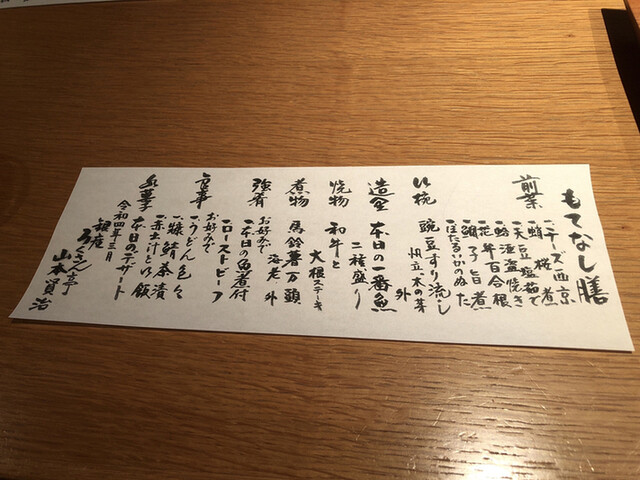 もてなし膳
前菜
一、チーズ西京
一、蛸桜煮
一、天豆塩茹で
一、蛤酒盗焼き
一、花弁百合根
一、鯛の子旨煮
一、ほたるいかのぬた
お椀
豌豆すり流し
帆立 木の芽
外
造里
本日の一番魚
二種盛り
焼物
和牛と
大根ステーキ
煮物
馬鈴薯万頭
海老 外
強肴
お好みで
一、本日の魚煮付
一、ローストビーフ
食事
お好みで
一、うどん色々
一、焼鯖茶漬
一、赤出汁と御飯
水菓子
本日のデザート
令和四年三月
銀座 ろくさん亭
山本員治